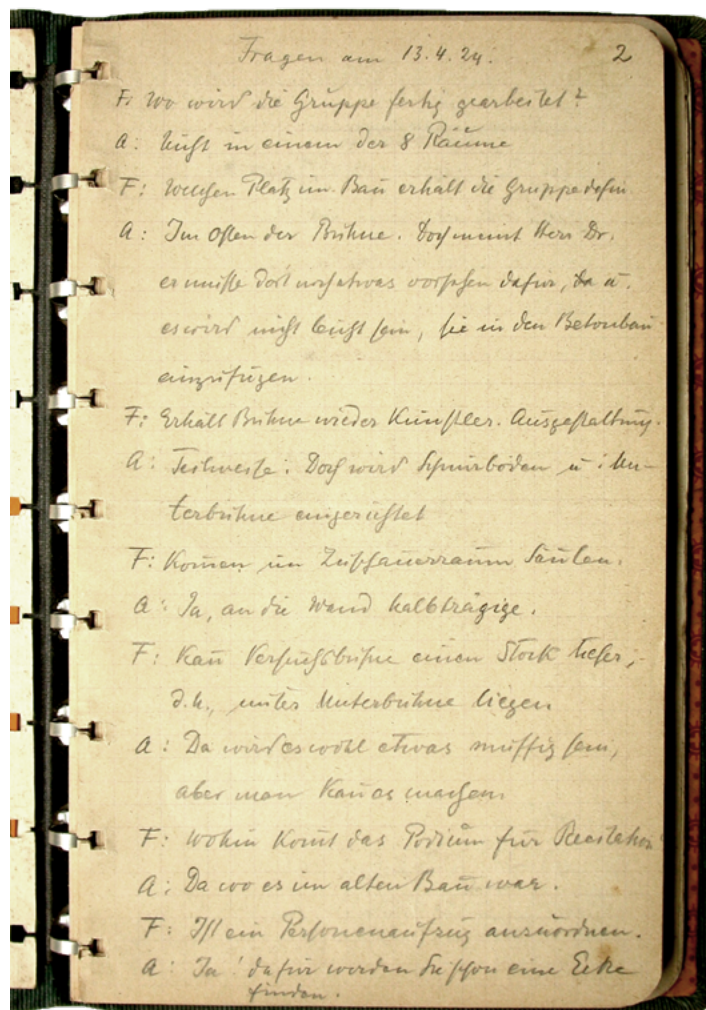 Fragen am 13.4.24. 2
F: Wo wird die Gruppe fertig gearbeitet?
A: Nicht in einem der 8 Räume
F: Welchen Platz im Bau erhält die Gruppe dann
A: Im Osten der Bühne. Doch meint Herr Dr.
er müsse dort noch etwas vorsehen dafür, da u.
es wird nicht leicht sein, sie in den Betonbau
einzufügen.
F: Erhält Bühne wieder Künstler. Ausgestaltung.
A: Teilweise. Doch wird Schnürboden u: Un-
terbühne eingerichtet
F: Komen im Zuschauerraum Säulen.
A: Ja, an die Wand halbträgige.
F: Kan̄ Versuchsbühne einen Stock tiefer,
d.h., unter Unterbühne liegen
A: Da wird es wohl etwas muffig sein,
aber man kan̄ es machen
F: Wohin kom̄t das Podium für Recitation?
A: Da wo es im alten Bau war.
F: Ist ein Personenaufzug anzuordnen.
A: Ja! dafür werden Sie schon eine Ecke
finden.